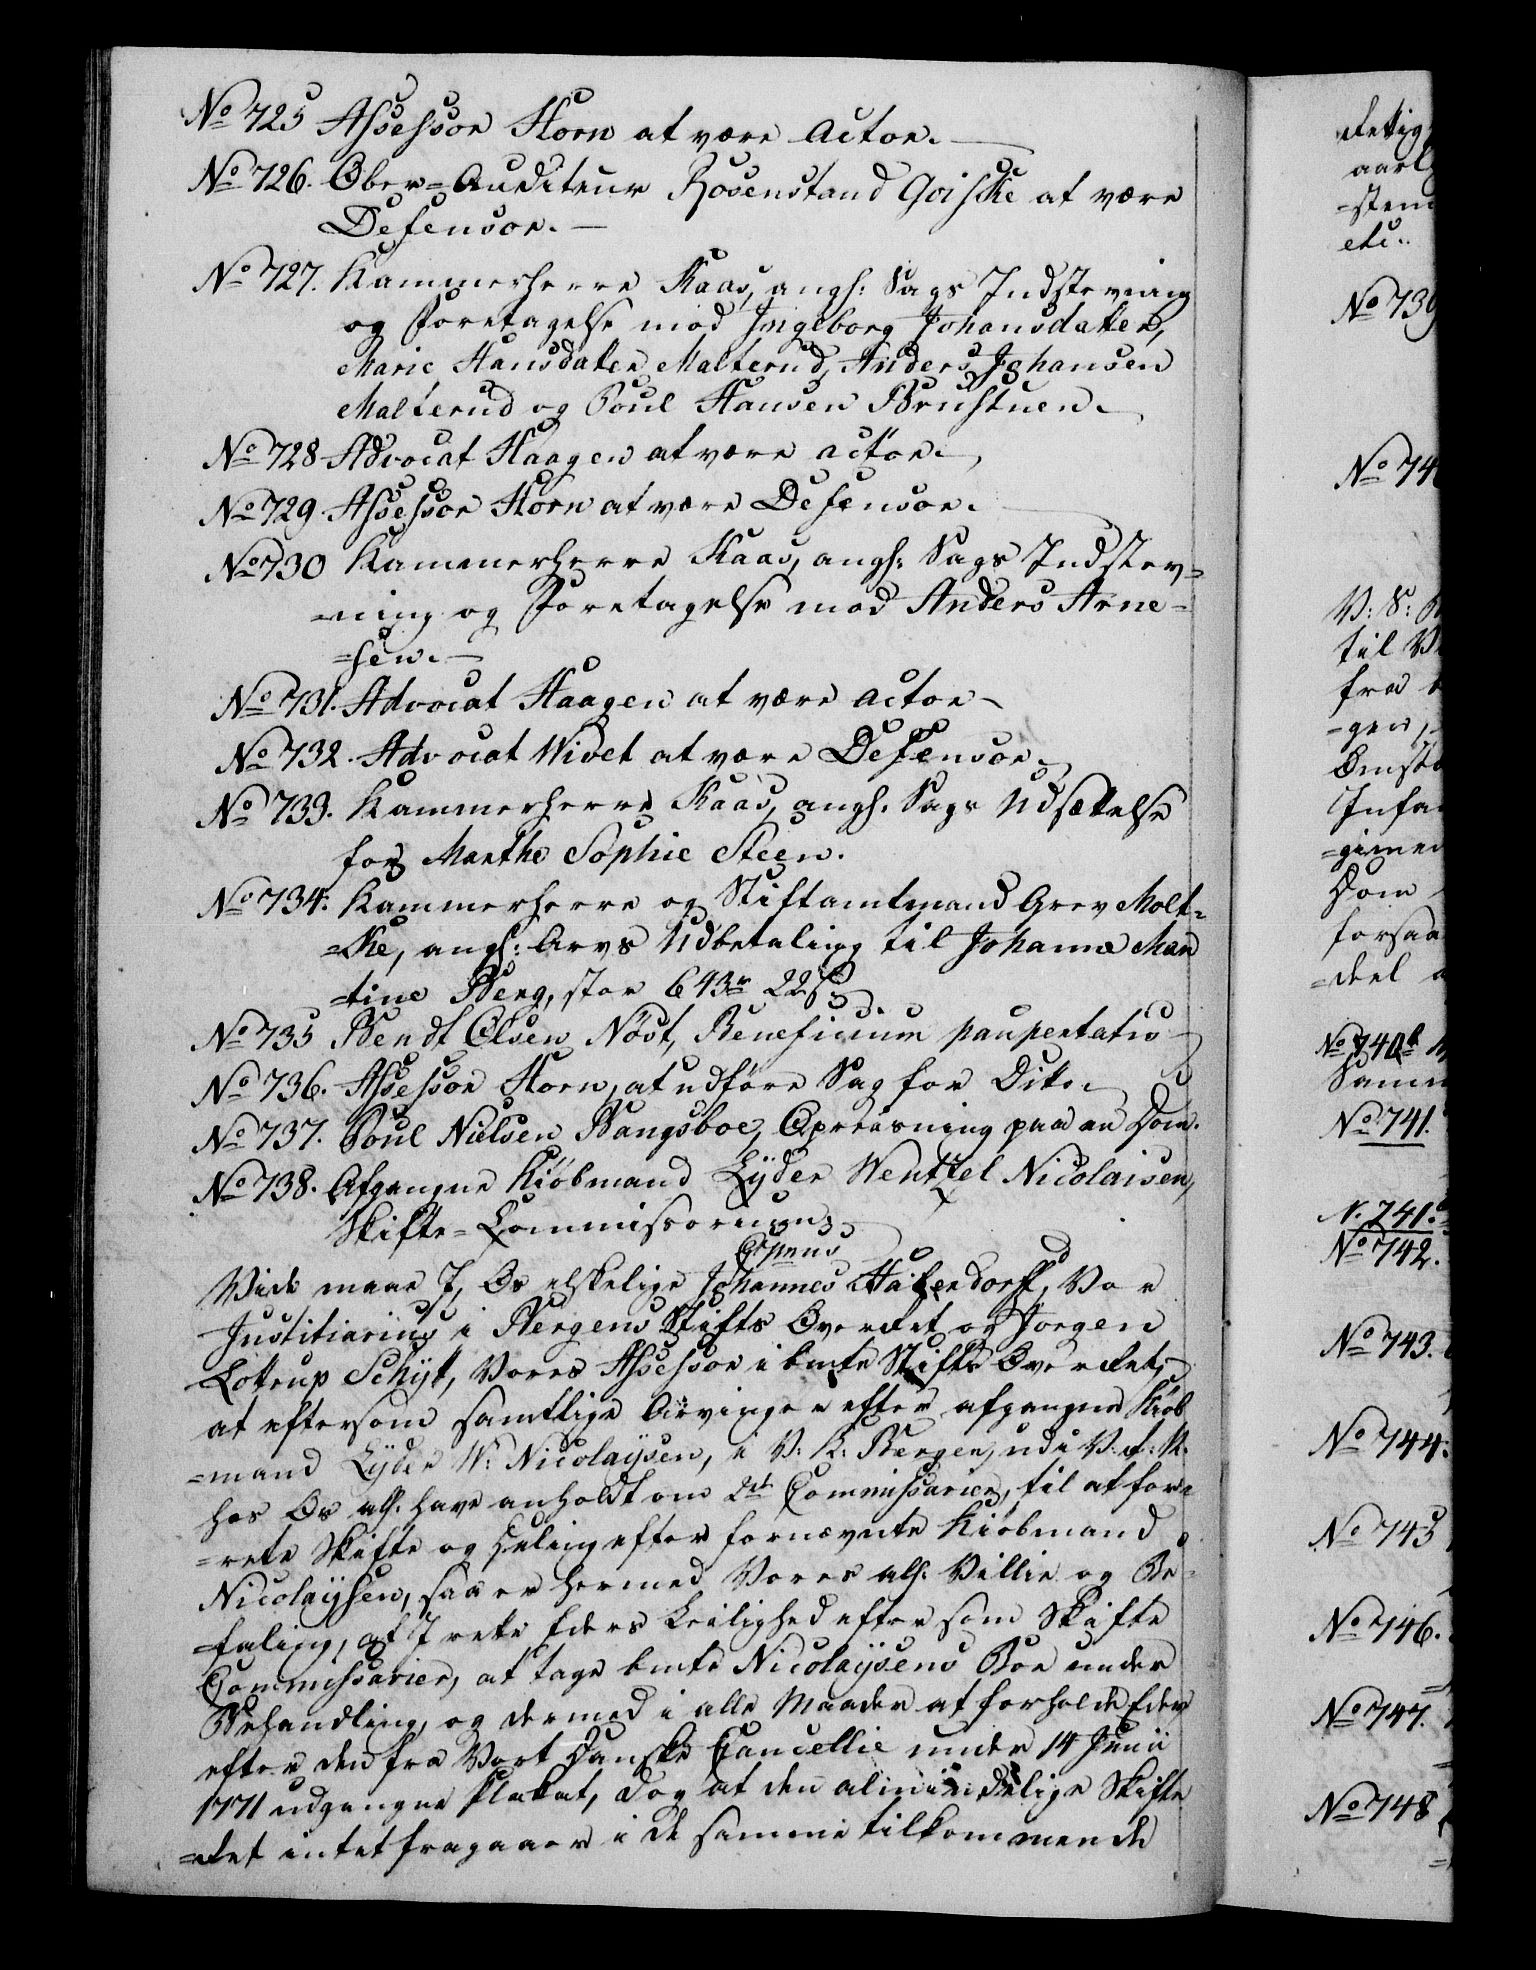 No 725 Assessor Horn at være Actor.
No 726. Ober=Auditeur Rosenstand Goiske at være
Defensor.
No 727. Kammerherre Kaas, angl: Sags Indstevning
og Foretagelse mod Ingeborg Johansdatter,
Marie Hansdatter Malterud, Anders Johansen
Malterud og Poul Hansen Brustuen.
No 728 Advocat Haagen at være actor.
No 729. Assessor Horn at være Defensor.
No 730 Kammerherre Kaas, angl: Sags Indstev=
=ning og Foretagelse mod Anders Arne=
=sen.
No 731. Advocat Haagen at være Actor
No 732. Advocat Wivet at være Defensor
No 733. Kammerherre Kaas, angl: Sags Udsættelse
for Marthe Sophie Steen.
No 734. Kammerherre og Stiftamtmand Grev Molt=
=ke, angl: Arvs Udbetaling til Johanna Mar
=tine Berg, stor 643 r 22 s
No 735 Bendt Olsen Nöst, Beneficium paupertatis
No 736. Assessor Horn, at udføre Sag for Dito.
No 737. Poul Nielsen Bangsboe, Opreisning paa en Dom.
No 738. Afgangne Kiøbmand Lyder Wenttel Nicolaisen,
Skifte=Commissorium.
Espens
Vide maae I, Os elskelige Johannes Hafendorff, Vor
Justitiarius i Bergens Stifts Overret og Jørgen
Lottrup Schyt, Vores Assessor i bmte Stifts Overret,
at eftersom samtlige Arvinger efter afgangne Kiøb
=mand Lyder W: Nicolaysen, i V: K: Bergen, udi V: R: N:
hos Os all: have anholdt om 2de Commissarier, til at for=
=rette Skifte og Deling efter fornævnte Kiøbmand
Nicolaysen, saa er hermed Vores all: Villie og Be=
=faling, at I rette Eders Leilighed efter som Skifte
Commissarier, at tage bmte Nicolaysens Boe under
Behandling, og dermed i alle Maader at forholde Eder
efter den fra Vort Danske Cancellie under 14 Junii
1771 udgangne Plakat, dog at den almindelige Skifte
=ret intet fragaaer i de samme tilkommende
retig
aarl
=sten
etc.
No 739
No 74
V: S:
til V
fra
=gen,
Omst
Infa
=gimen
Dom
forsaa
=deel a
No 740 b
Samm
No 741.
N. 741.
No 742.
No 743.
No 744.
No 745
No 746.
No 747.
No 748